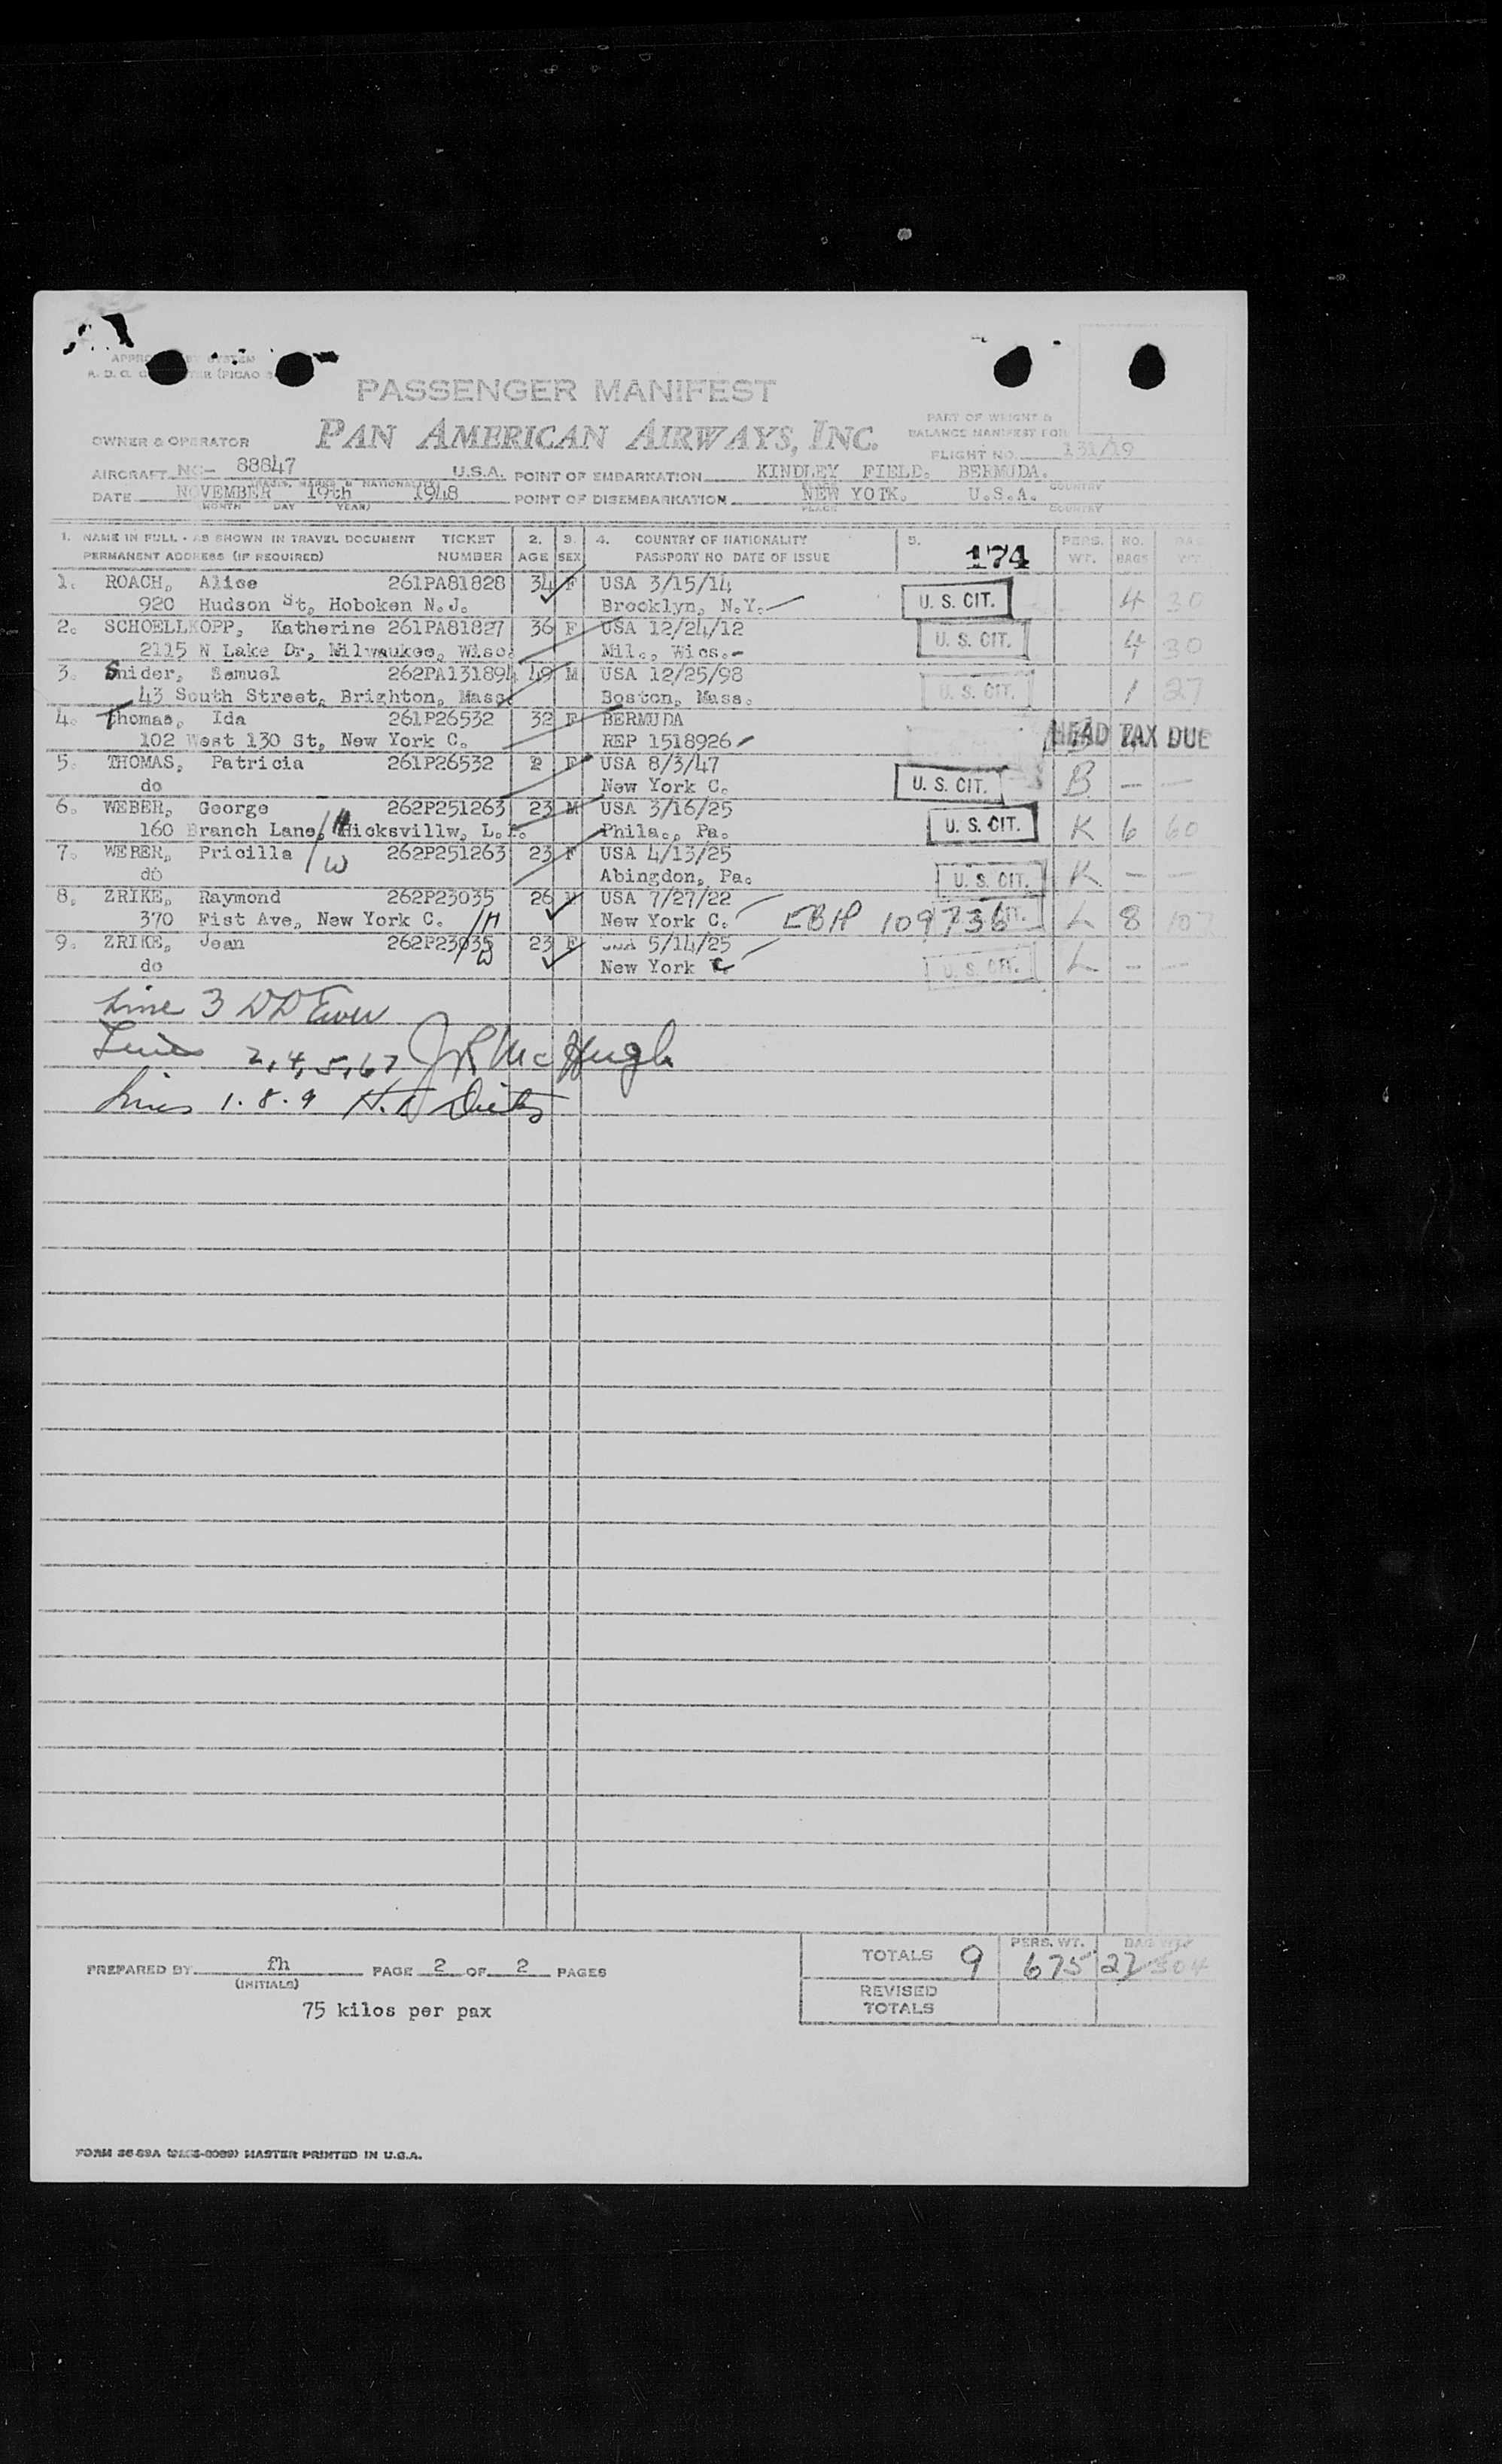 PASSENGER MANIFEST
PAN AMERICAN AIRWAYS, INC.
OWNER & OPERATOR
PART OF WEIGHT &
BALANCE MANIFEST FOR
FLIGHT NO. 131/19
AIRCRAFT NC- 88847 U.S.A. POINT OF EMBARKATION KINDLEY FIELD. BERMUDA.
DATE NOVEMBER 19th 1948 POINT OF DISEMBARKATION NEW YORK. U.S.A.
MONTH DAY YEAR) PLACE COUNTRY
1. NAME IN FULL - AS SHOWN IN TRAVEL DOCUMENT TICKET 2. 3. 4. COUNTRY OF NATIONALITY 5. PERS. NO.
PERMANENT ADDRESS (IF REQUIRED) NUMBER AGE SEX PASSPORT NO DATE OF ISSUE 174 WT. BAGS WT
1. ROACH, Alice 261PA81828 34 F USA 3/15/14
920 Hudson St, Hoboken N.J. Brooklyn, N.Y. U. S. CIT. 4 30
2. SCHOELLKOPP, Katherine 261PA81827 36 F USA 12/24/12
2115 N Lake Dr, Milwaukee, Wisc. Mil., Wics. U. S. CIT. 4 30
3. Snider, Samuel 262PA131894 49 M USA 12/25/98
43 South Street, Brighton, Mass Boston, Mass. U. S. CIT. 1 27
4. Thomas, Ida 261P26532 32 F BERMUDA
102 West 130 St, New York C. REP 1518926 HEAD TAX DUE
5. THOMAS, Patricia 261P26532 2 F USA 8/3/47
do New York C. U. S. CIT. B — —
6. WEBER, George 262P251263 23 M USA 3/16/25
160 Branch Lane, Hicksvillw, L.I. H Phila., Pa. U. S. CIT. K 6 60
7. WEBER, Pricilla 262P251263 23 F USA 4/13/25
do W Abingdon, Pa. U. S. CIT. K — —
8. ZRIKE, Raymond 262P23035 26 M USA 7/27/22
370 Fist Ave, New York C. H New York C. EBH 109736 L 8 107
9. ZRIKE, Jean 262P23035 23 F USA 5/14/25
do W New York C. U. S. CIT. L — —
Line 3
Lines 2, 4, 5, 6 7 J R McHugh
Lines 1. 8. 9
PREPARED BY fh PAGE 2 OF 2 PAGES
(INITIALS)
75 kilos per pax
PERS. WT.
TOTALS 9 675 27 304
REVISED
TOTALS
MASTER PRINTED IN U.S.A.